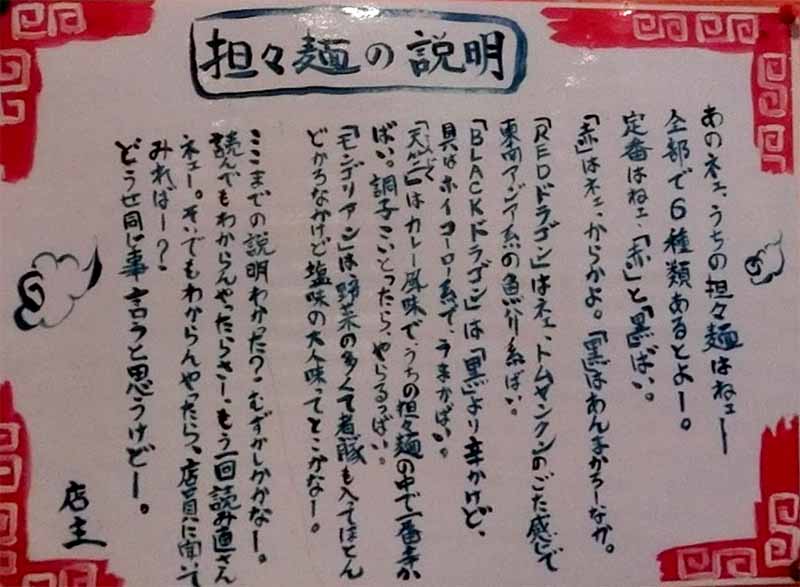 担々麺の説明
あのネェ、うちの担々麺はねェー
全部で6種類あるとよー。
定番はねェ、「赤」と「黒」ばい。
「赤」はネェ、からかよ。「黒」はあんまからーなか。
「REDドラゴン」はネェ、トムヤンクンのごた感じで
東南アジア系の魚介系ばい。
「BLACKドラゴン」は「黒」より辛かけど、
具はホイコーロー系で、うまかばい。
「天竺」はカレー風味でうちの担々麺の中で一番辛か
ばい。調子こいとったら、やらるっばい。
「モンゴリアン」は野菜の多くて煮豚も入ってほとん
どからなかけど塩味の大人味ってとこかなー。
ここまでの説明わかった?むずかしかかなー。
読んでもわからんやったらさー、もう一回読み直さん
ネェー。そいでもわからんやったら、店員に聞いて
みればー?
どうせ同じ事言うと思うけどー。
店主